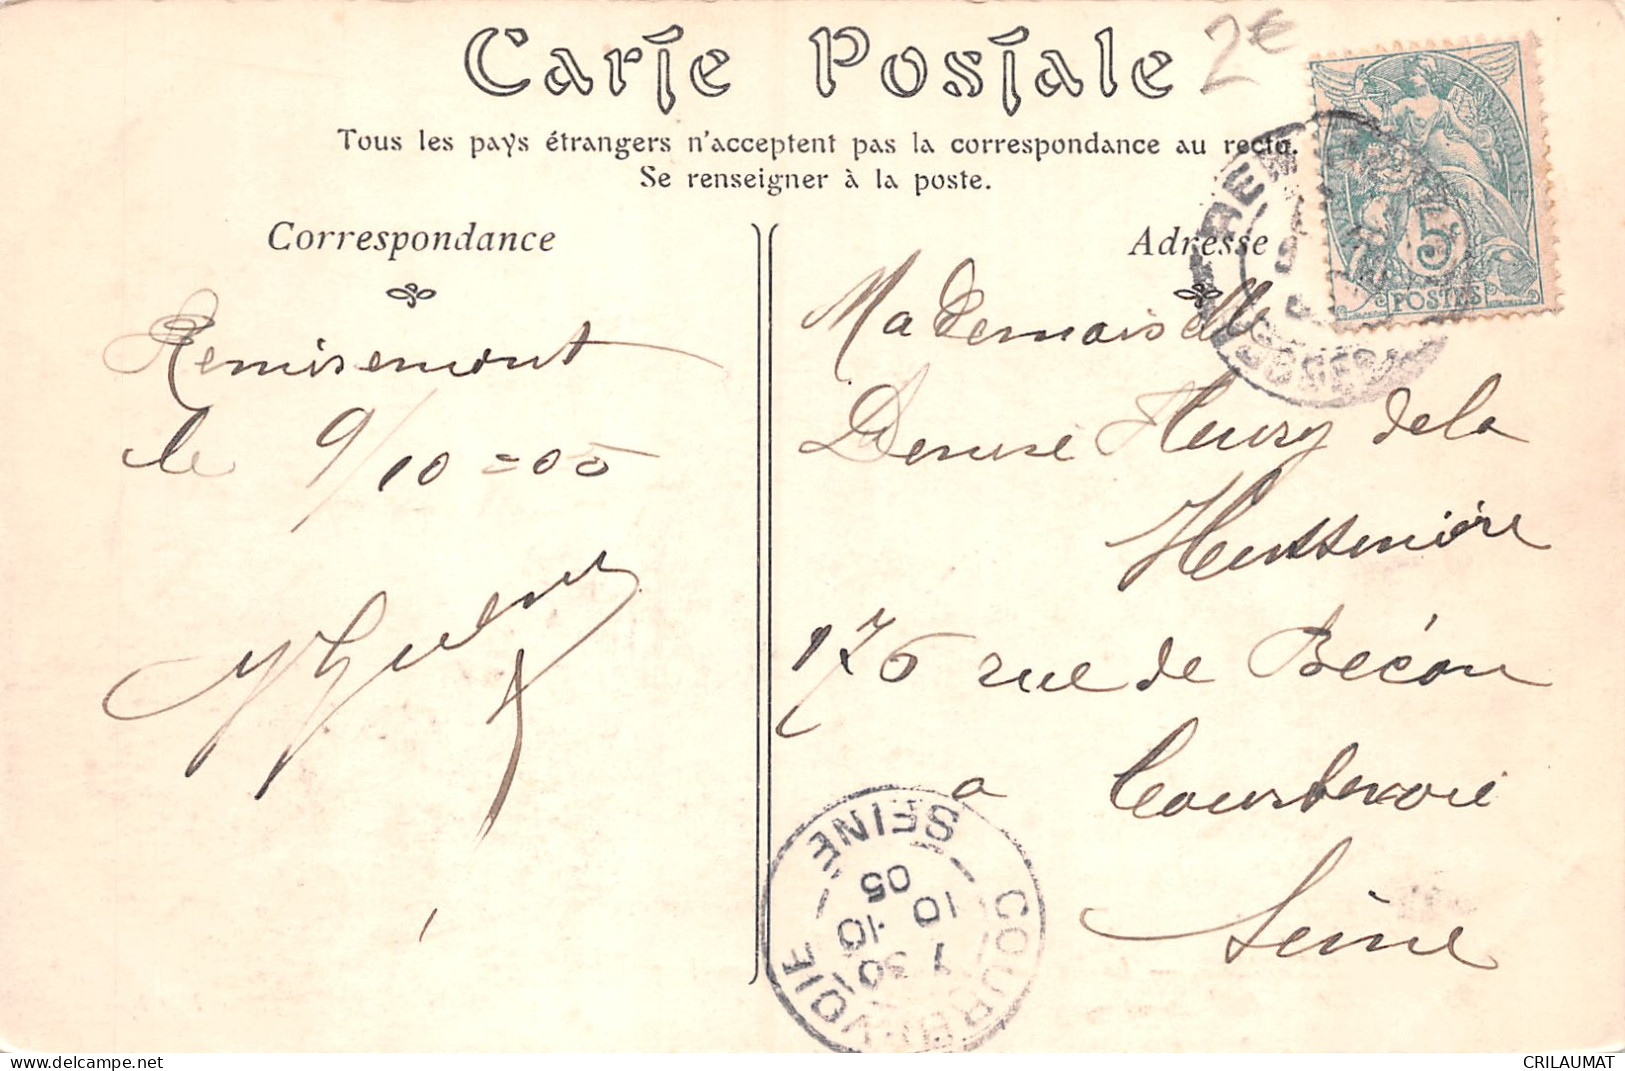 Carte Postale
2€
Tous les pays étrangers n'acceptent pas la correspondance au recto.
Se renseigner à la poste.
Correspondance
Adresse
Remiremont
le 9/10=05
Mademoiselle
Denise Fleury de la
Hussinière
176 rue de Bécon
a Courbevoie
Seine
5c
POSTES
COURBEVOIE
SEINE
7 30
10 10
05
delcampe.net
CRILAUMAT